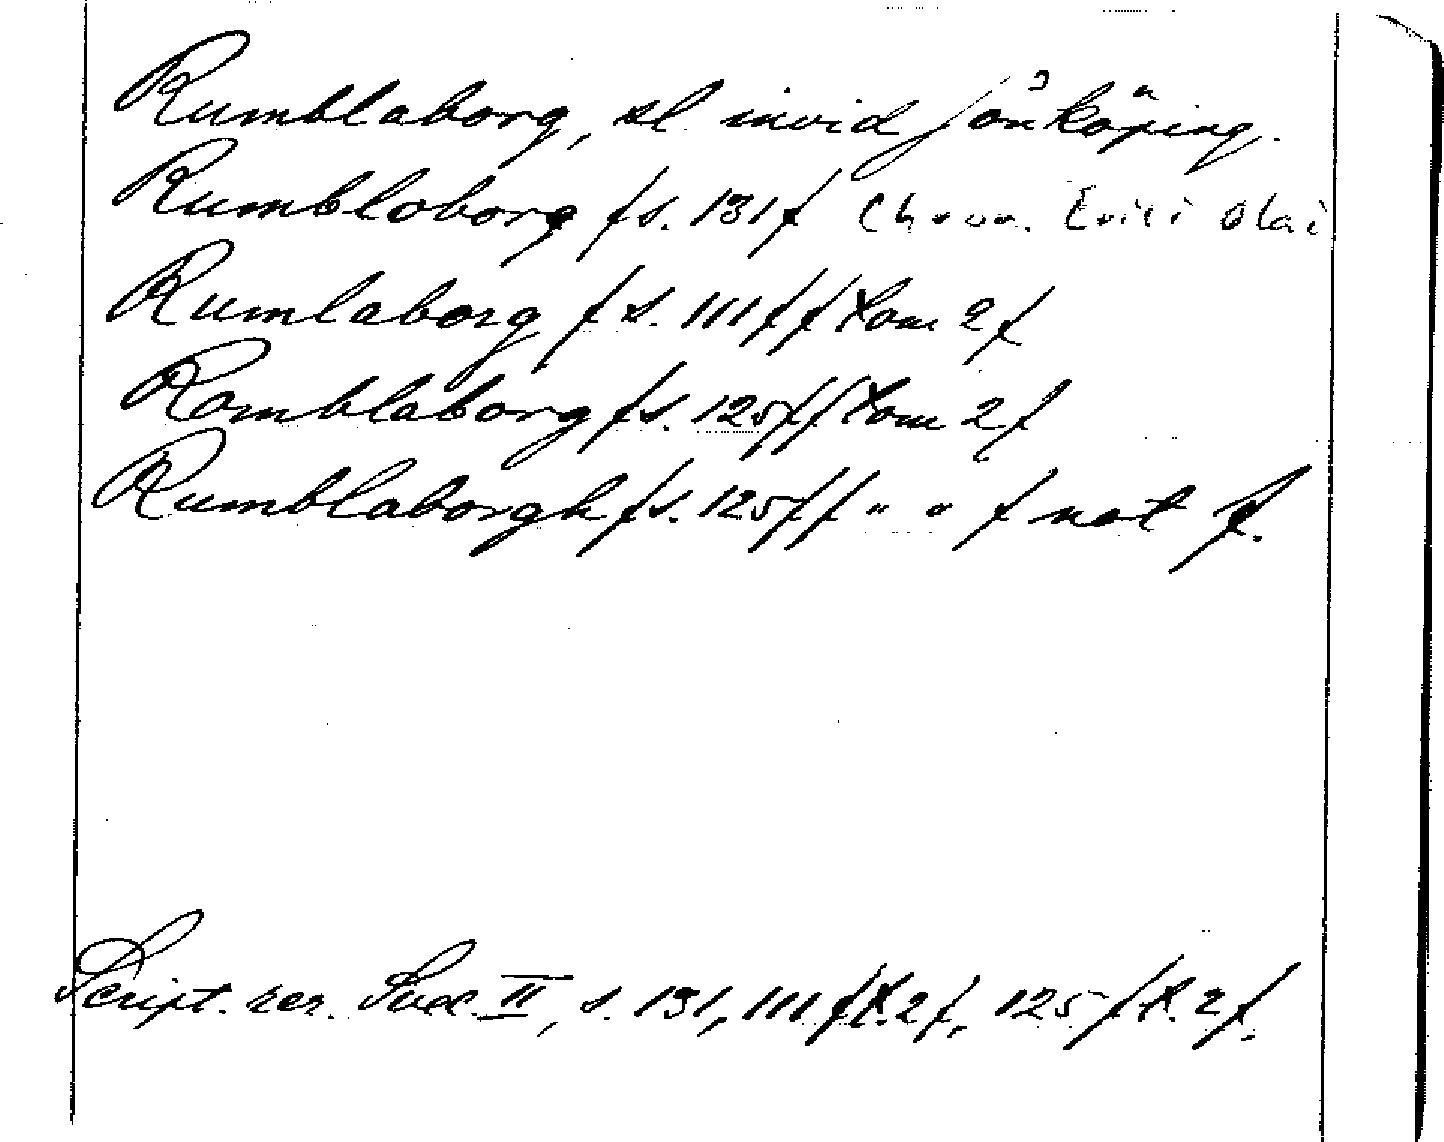 Rumblaborg, sl. invid Jönköping.
Rumbloborg /s. 131/ Chron. Erici Olai
Rumlaborg /s. 111/ /Tom 2/
Romblaborg /s. 125/ /Tom 2/
Rumblaborgh /s. 125/ / " " / not
Script. rer. Svec. II, s. 131, 111 /T. 2/, 125 /T. 2/.